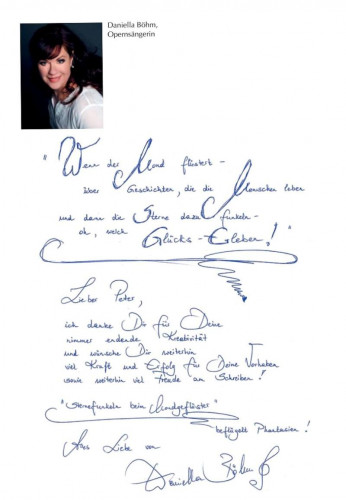 Daniella Böhm,
Opernsängerin
"Wenn der Mond flüstert -
über Geschichten, die die Menschen leben
und dann die Sterne dazu funkeln -
oh, welch Glücks-Erleben!"
Lieber Peter,
ich danke Dir für Deine
nimmer endende Kreativität
und wünsche Dir weiterhin
viel Kraft und Erfolg für Deine Vorhaben
sowie weiterhin viel Freude am Schreiben!
"Sternefunkeln beim Mondgeflüster"
beflügelt Phantasien!
Alles Liebe von
Daniella Böhm